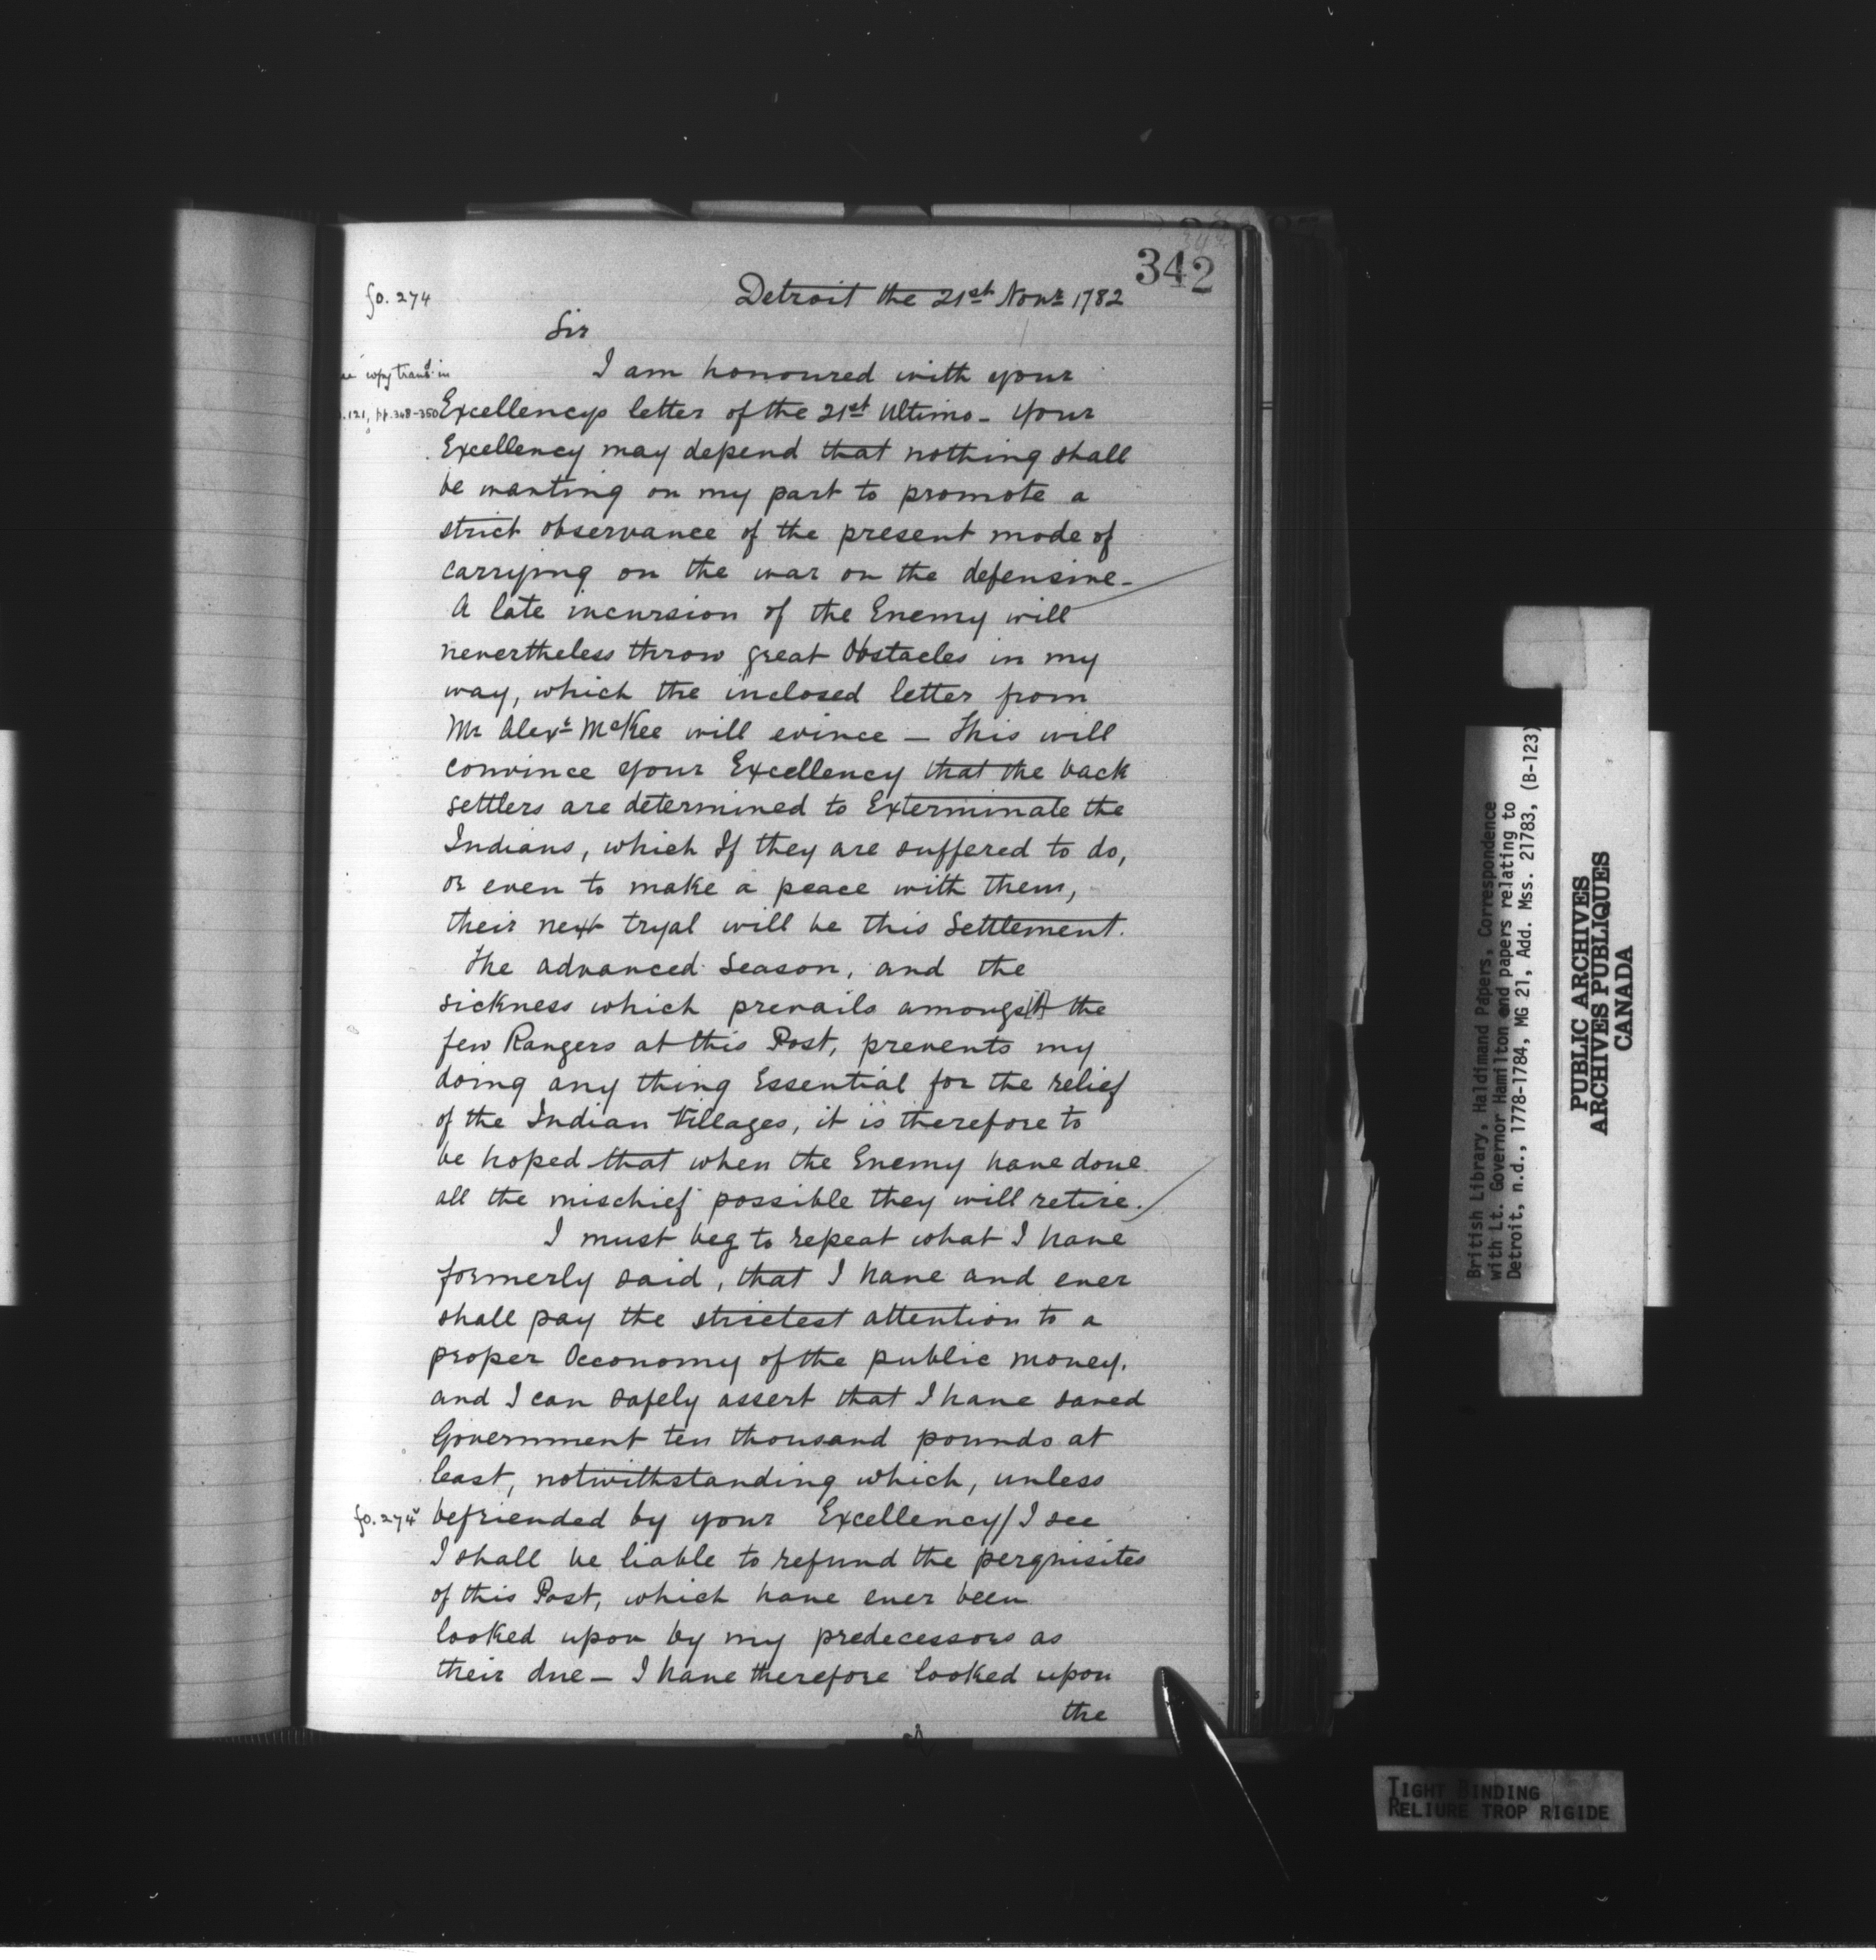 342
fo. 274
Detroit the 21st Novr 1782
Sir
copy transd in
I am honoured with your
.121, pp. 348-350
Excellencys letter of the 21st Ultimo - Your
Excellency may depend that nothing shall
be wanting on my part to promote a
strict observance of the present mode of
carrying on the war on the defensive -
A late incursion of the Enemy will
nevertheless throw great Obstacles in my
way, which the inclosed letter from
Mr Alexr McKee will evince — This will
convince your Excellency that the back
settlers are determined to Exterminate the
Indians, which If they are suffered to do,
or even to make a peace with them,
their next tryal will be this Settlement.
The advanced Season, and the
sickness which prevails amongst the
few Rangers at this Post, prevents my
doing any thing Essential for the relief
of the Indian Villages, it is therefore to
be hoped that when the Enemy have done
all the mischief possible they will retire.
I must beg to repeat what I have
formerly said, that I have and ever
shall pay the strictest attention to a
proper Oeconomy of the public money.
and I can safely assert that I have saved
Government ten thousand pounds at
least, notwithstanding which, unless
fo. 274v
befriended by your Excellency/ I see
I shall be liable to refund the perquisites
of this Post, which have ever been
looked upon by my predecessors as
their due — I have therefore looked upon
the
British Library, Haldimand Papers, Correspondence
with Lt. Governor Hamilton and papers relating to
Detroit, n.d., 1778-1784, MG 21, Add. Mss. 21783, (B-123)
PUBLIC ARCHIVES
ARCHIVES PUBLIQUES
CANADA
TIGHT BINDING
RELIURE TROP RIGIDE